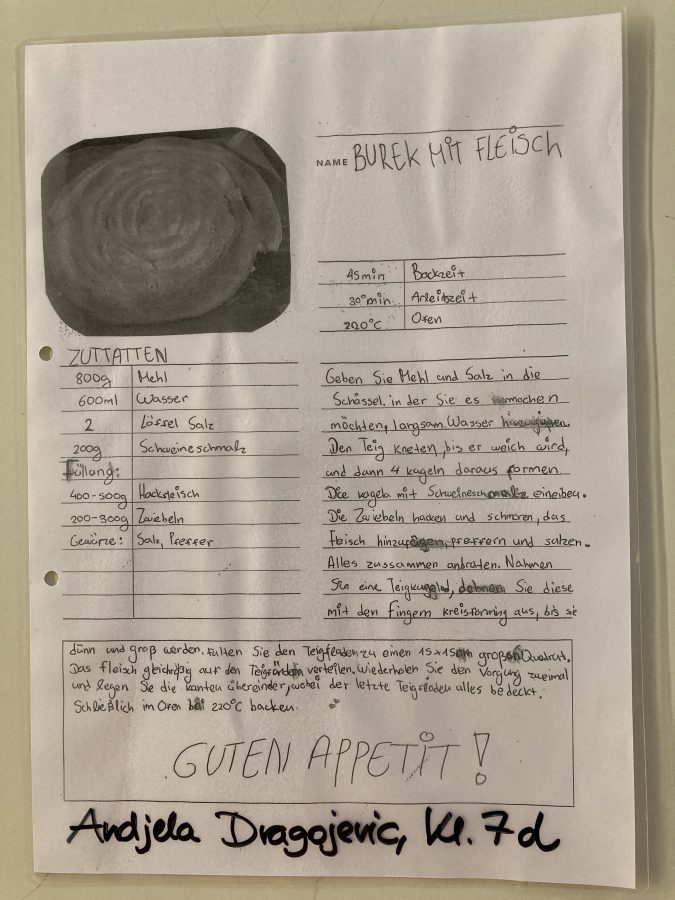 NAME BUREK MIT FLEISCH
45min Backzeit
30min Arbeitszeit
220°C Ofen
ZUTTATTEN
800g Mehl
600ml Wasser
2 Löffel Salz
200g Schweineschmalz
Füllung:
400-500g Hackfleisch
200-300g Zwiebeln
Gewürze: Salz, Pfeffer
Geben Sie Mehl und Salz in die
Schüssel, in der Sie es vermachen
möchten, langsam Wasser hinzugießen.
Den Teig kneten, bis er weich wird,
und dann 4 kugeln daraus formen
Die kugeln mit Schweineschmaltz
Die Zwiebeln hacken und schmoren, das
Fleisch hinzufügen, pfeffern und salzen.
Alles zussammen anbraten. Nahmen
Sie eine Teigkugeld, dehnen Sie diese
mit den Fingern kreisforming aus, bis sie
dünn und groß werden. Falten Sie den Teigfladen zu einen 15x15cm großen Quadrat.
Das fleisch gleichmäßig auf den verteilen. Wiederholen Sie den Vorgung zweimal
und legen Sie die kanten übereinder, wobei der letzte Teigfladen alles bedeckt.
Schließlich im Ofen bei 220°C backen
GUTEN APPETIT!
Andjela Dragojevic, Kl. 7d